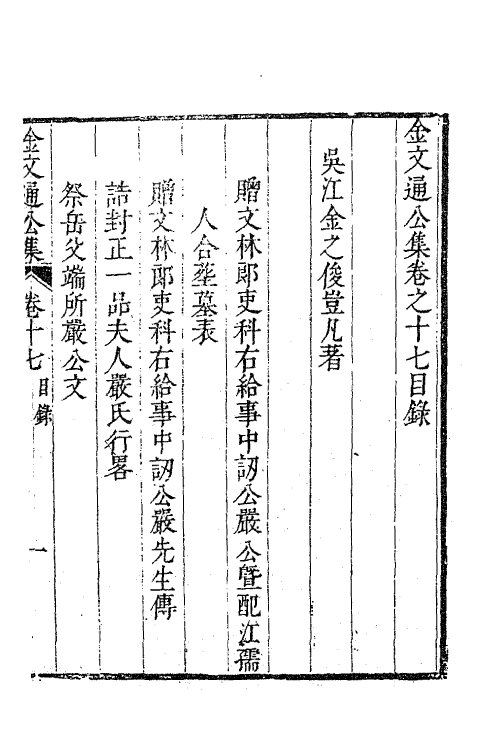 金文通公集卷之十七目錄
吳江金之俊豈凡著
贈文林郎吏科右給事中訒公嚴公暨配江孺
人合塟墓表
贈文林郎吏科右給事中訒公嚴先生傳
誥封正一品夫人嚴氏行畧
祭岳父端所嚴公文
金文通公集 卷十七 目錄 一